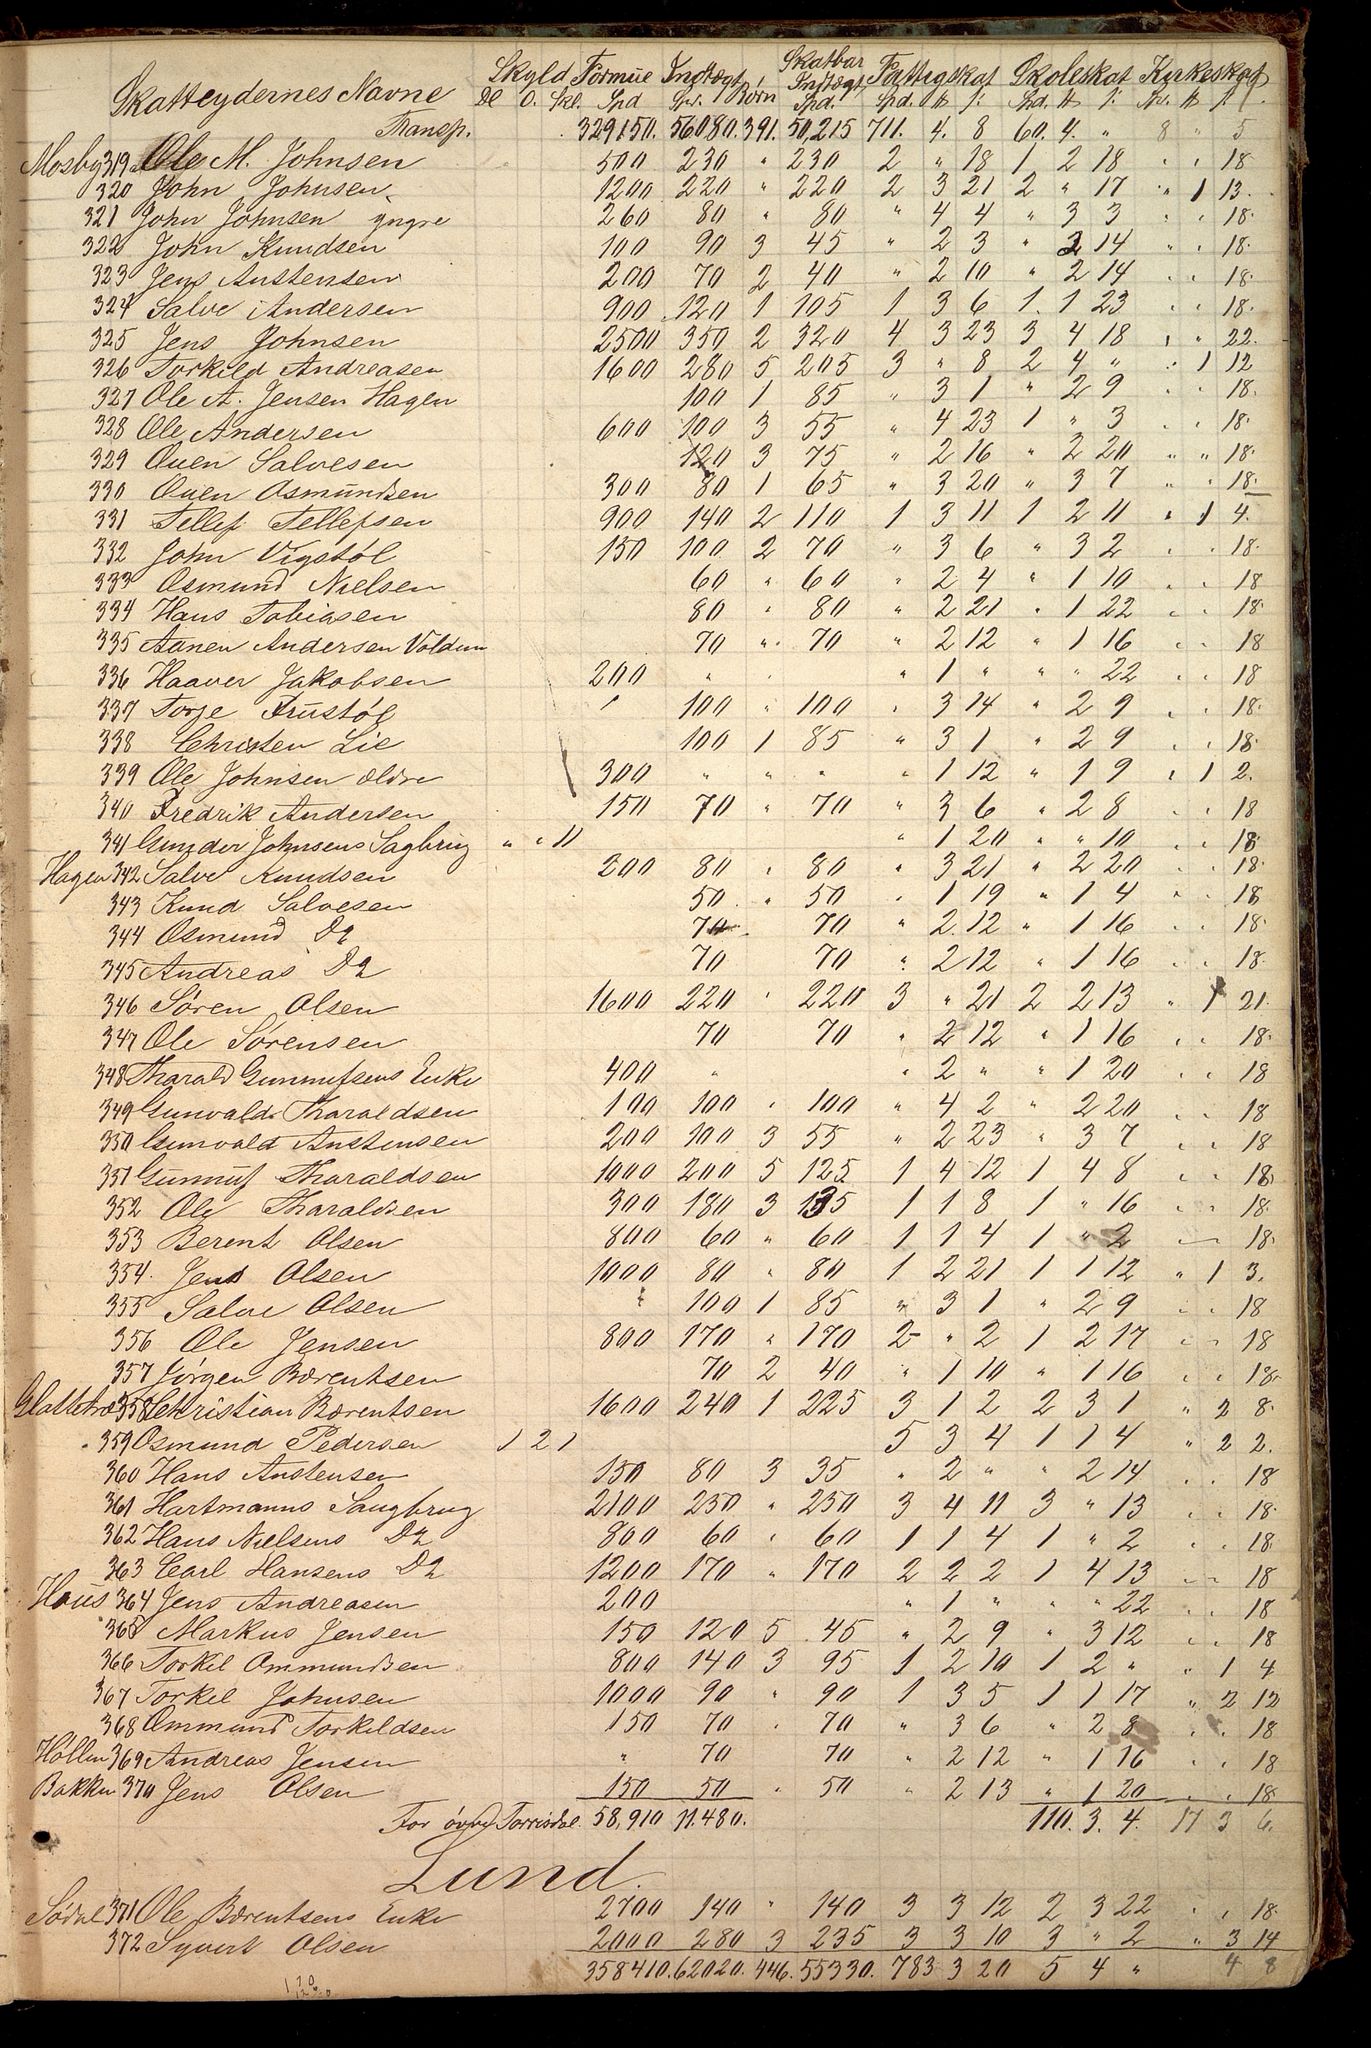 Skatteydernes Navne Skyld Formue Indtægt Børn Skatbar Indtægt Fattigskat Skoleskat Kirkeskat
Dl O. Skl. Spd Spd. Spd. Spd. # ſ: Spd. # ſ: Spd. # ſ.
Transp. 329150. 56080. 391. 50,215 711. 4. 8 60. 4. " 8 " 5
Mosby 319 Ole M. Johnsen 500 230 " 230 2 " 18 1 2 18 " " 18
320 John Johnsen 1200 220 " 220 2 3 21 2 " 17 " 1 13.
321 John Johnsen yngre 260 80 " 80 " 4 4 " 3 3 " " 18.
322 John Knudsen 100 90 3 45 " 2 3 " 2 14 " " 18.
323 Jens Anstensen 200 70 2 40 " 2 10 " 2 14 " " 18.
324 Salve Andersen 900 120 1 105 1 3 6 1. 1 23 " " 18.
325 Jens Johnsen 2500 350 2 320 4 3 23 3 4 18 " " 22.
326 Torkild Andreasen 1600 280 5 205 3 " 8 2 4 " " 1 12
327 Ole A. Jensen Hagen 100 1 85 " 3 1 " 2 9 " 18.
328 Ole Andersen 600 100 3 55 " 4 23 1 " 3 " " 18.
329 Ouen Salvesen 120 3 75 " 2 16 " 2 20 " " 18.
330 Ouen Osmundsen 300 80 1 65 " 3 20 " 3 7 " " 18.
331 Tellef Tellefsen 900 140 2 110 1 3 11 1 2 11 " 1 4.
332 John Vigstøl 150 100 2 70 " 3 6 " 3 2 " " 18.
333 Osmund Nielsen 60 " 60 " 2 4 " 1 10 " " 18
334 Hans Tobiasen 80 " 80 " 2 21 " 1 22 " " 18.
335 Aanen Andersen Voldum 70 " 70 " 2 12 " 1 16 " " 18
336 Haaver Jakobsen 200 " " " 1 " " " 22 " " 18
337 Torje Frustøl " 100 " 100 " 3 14 " 2 9 " " 18.
338 Christen Lie 100 1 85 " 3 1 " 2 9 " " 18.
339 Ole Johnsen ældre 300 " " " " 1 12 " 1 9 " 1 2.
340 Fredrik Andersen 150 70 " 70 " 3 6 " 2 8 " " 18
341 Gunder Johnsens Sagbrug " " 11 " 1 20 " " 10 " " 18
Hagen 342 Salve Knudsen 200 80 " 80 " 3 21 " 2 20 " " 18.
343 Knud Salvesen 50 " 50 " 1 19 " 1 4 " " 18
344 Osmund Do 70 70 " 2.12 " 1 16 " " 18.
345 Andreas Do 70 70 " 2 12 " 1 16 " " 18.
346 Søren Olsen 1600 220 " 220 3 " 21 2 2 13 " 1 21.
347 Ole Sørensen 70 70 " 2 12 " 1 16 " " 18.
348 Tharald Gunnufsens Enke 400 " " 2 " " 1 20 " " 18
349 Gunvald Tharaldsen 100 100 " 100 " 4 2 " 2 20 " " 18
350 Gunvald Anstensen 200 100 3 55 " 2 23 " 3 7 " " 18
351 Gunnuf Tharaldsen 1000 200 5 125 1 4 12 1 4 8 " " 18.
352 Ole Tharaldsen 300 180 3 135 1 1 8 1 " 16 " " 18.
353 Berent Olsen 800 60 " 60 1 1 4 1 " 2 " " 18.
354. Jens Olsen 1000 80 " 80 1 2 21 1 1 12 " 1 3.
355 Salve Olsen " 100 1 85 " 3 1 " 2 9 " " 18
356 Ole Jensen 800 170 " 170 2 " 2 1 2 17 " " 18
357 Jørgen Bærentsen 70 2 40 " 1 10 " 1 16 " " 18.
358 Christian Bærentsen 1600 240 1 225 3 1 2 2 3 1 " 2 8.
" 359 Osmund Pedersen 1 2 1 5 3 4 1 1 4 " 2 2.
360 Hans Anstensen 150 80 3 35 " 2 " " 2 14 " " 18
361 Hartmanns Saugbrug 2100 250 " 250 3 4 11 3 " 13 " " 18.
362 Hans Nielsens Do 800 60 " 60 1 1 4 1 " 2 " " 18.
363 Carl Hansens Do 1200 170 " 170 2 2 2 1 4 13 " " 18
Haus 364 Jens Andreasen 200 " 1 " " " 22 " " 18
365 Markus Jensen 150 120 5 45 " 2 9 " 3 12 " " 18
366 Torkil Ommundsen 800 140 3 95 1 2 10 1 2 " " 1 4
367 Torkil Johnsen 1000 90 " 90 1 3 5 1 1 17 " 2 12
368 Ommund Torkildsen 150 70 " 70 " 3 6 " 2 8 " " 18
Hollen 369 Andreas Jensen " 70 70 " 2 12 " 1 16 " " 18
Bakken 370 Jens Olsen 150 50 " 50 " 2 13 " 1 20 " " 18.
For øvre Torrisdal 58,910 11.480. 110. 3. 4. 17 3 6.
Lund.
Sødal 371 Ole Bærentsens Enke 2700 140 " 140 3 3 12 2 3 22 " " 18.
372 Syvert Olsen 2000 280 3 235 3 3 10 3 " 2 " 3 14
358410. 62020. 446. 55330. 783 3 20 5 4 " 4 8